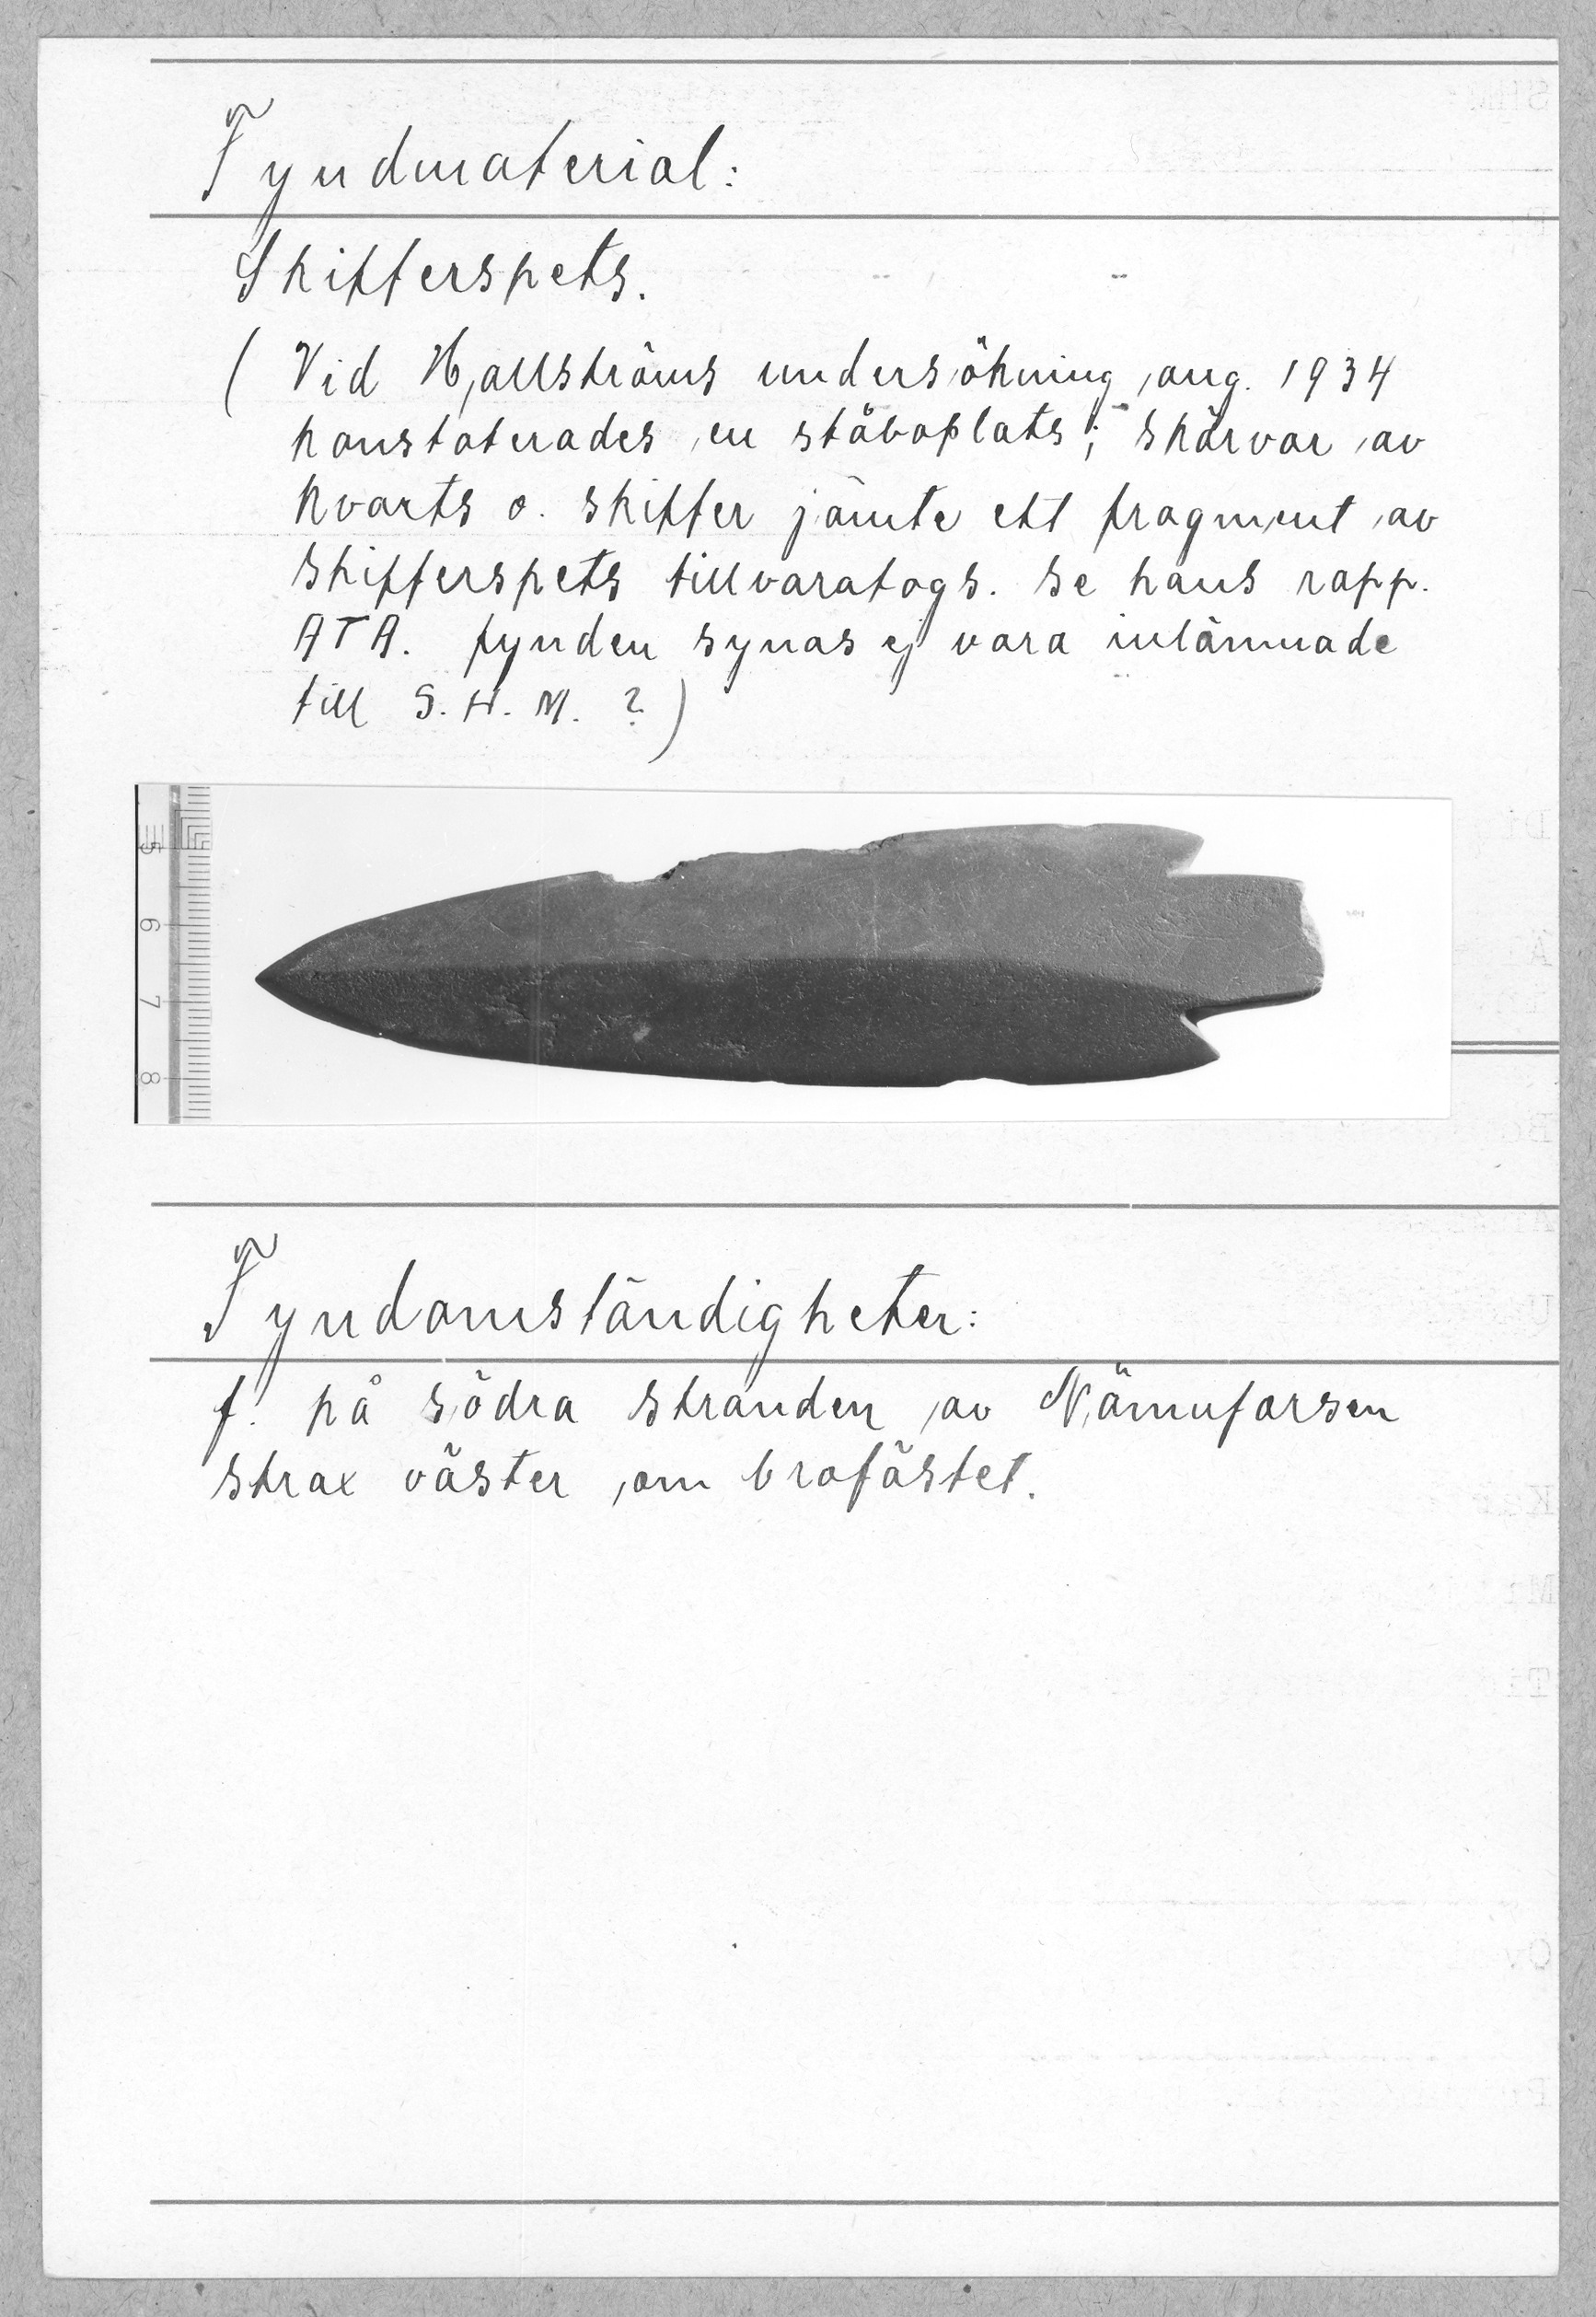 Fyndmaterial:
Skifferspets.
( Vid Hallströms undersökning aug. 1934
konstaterades en ståboplats; skärvor av
kvarts o. skiffer jämte ett fragment av
skifferspets tillvaratogs. se hans rapp.
ATA. fynden synas ej vara inlämnade
till S. H. M. ? )
5
6
7
8
Fyndomständigheter:
f. på södra stranden av Nämnforsen
strax väster om brofästet.